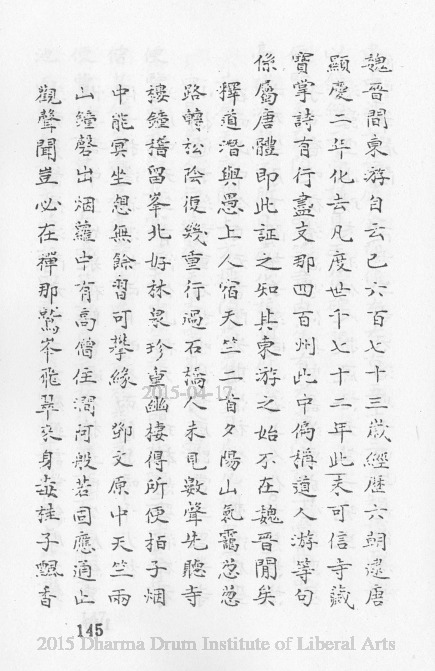 魏晉間東游自云已六百七十三歲經歷六朝逮唐
顯慶二年化去凡度世千七十二年此未可信寺藏
寶掌詩有行盡支那四百州此中偏稱道人游等句
係屬唐體即此証之知其東游之始不在魏晉間矣
釋道潛與愚上人宿天竺二首夕陽山氣靄葱葱
路轉松陰復幾重行過石橋人未見數聲先聽寺
樓鐘稽留峯北好林泉珍重幽棲得所便柏子烟
中能冥坐想無餘習可攀緣 鄧文原中天竺雨
山鐘磬出烟蘿中有高僧住澗阿般若回應通止
觀聲聞豈必在禪那鷲峯飛翠來身畫桂子飄香
145
2015-04-17
2015 Dharma Drum Institute of Liberal Arts